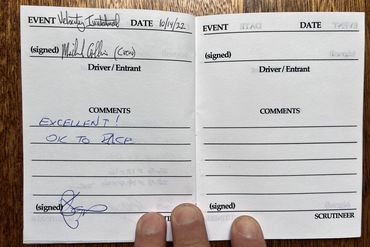 EVENT Velocity Invitational DATE 10/14/22
(signed) Michael Collins (CREW)
Driver/Entrant
COMMENTS
EXCELLENT!
OK TO RACE
(signed)
EVENT DATE
(signed)
Driver/Entrant
COMMENTS
(signed)
SCRUTINEER